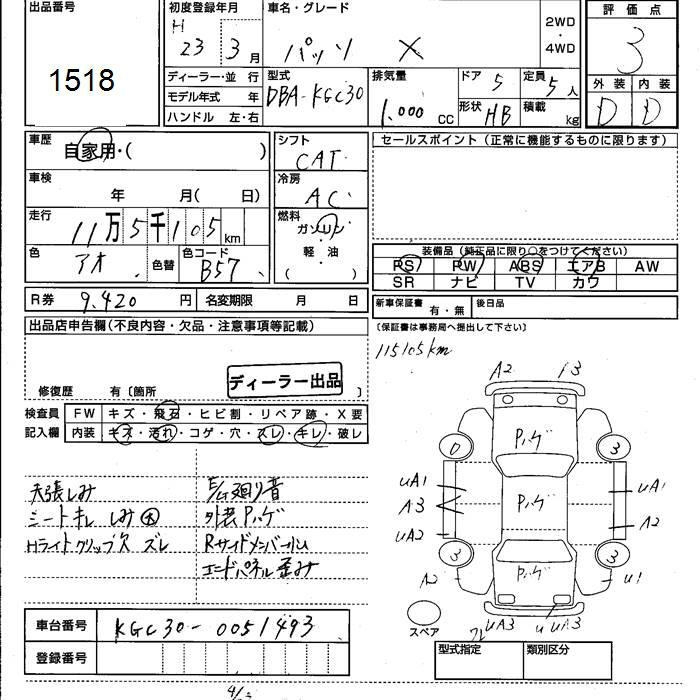 出品番号
1518
初度登録年月
H 23 3月
車名・グレード
パッソ X
2WD
・
4WD
評価点
3
外装 内装
D D
ディーラー・並行
モデル年式 年
ハンドル 左・右
型式
DBA-KGC30
排気量
1.000 CC
ドア 5
定員 5人
形状 HB
積載 kg
車歴
自家用・( )
車検
年 月( 日)
走行
11万5千105km
色
アオ
色替
色コード
B57
シフト
CAT
冷房
AC
燃料
ガソリン
軽・油
( )
セールスポイント (正常に機能するものに限ります)
装備品 (純正品に限り○をつけてください)
PS PW ABS エアB AW
SR ナビ TV カワ
R券 9.420円 名変期限 月 日
新車保証書 有・無 後日品
〔保証書は事務局へ提出して下さい〕
出品店申告欄(不良内容・欠品・注意事項等記載)
115105km
ディーラー出品
修復歴 有〔箇所
検査員
記入欄
FW キズ・飛石・ヒビ割・リペア跡・X要
内装 キズ・汚れ・コゲ・穴・スレ・キレ・破レ
天張しみ
シートキレ しみ大
Hライトクリップ欠 ズレ
E/G廻り音
外装Pハゲ
Rサイドメンバー凹ム
エンドパネル歪み
A2 13
Pハゲ
0 3
uA1 uA1
A3 Pハゲ
A2
uA2
3 3
A2 Pハゲ u1
スペア
フレ uA3 u uA3
車台番号 KGC30-0051493
登録番号
型式指定 類別区分